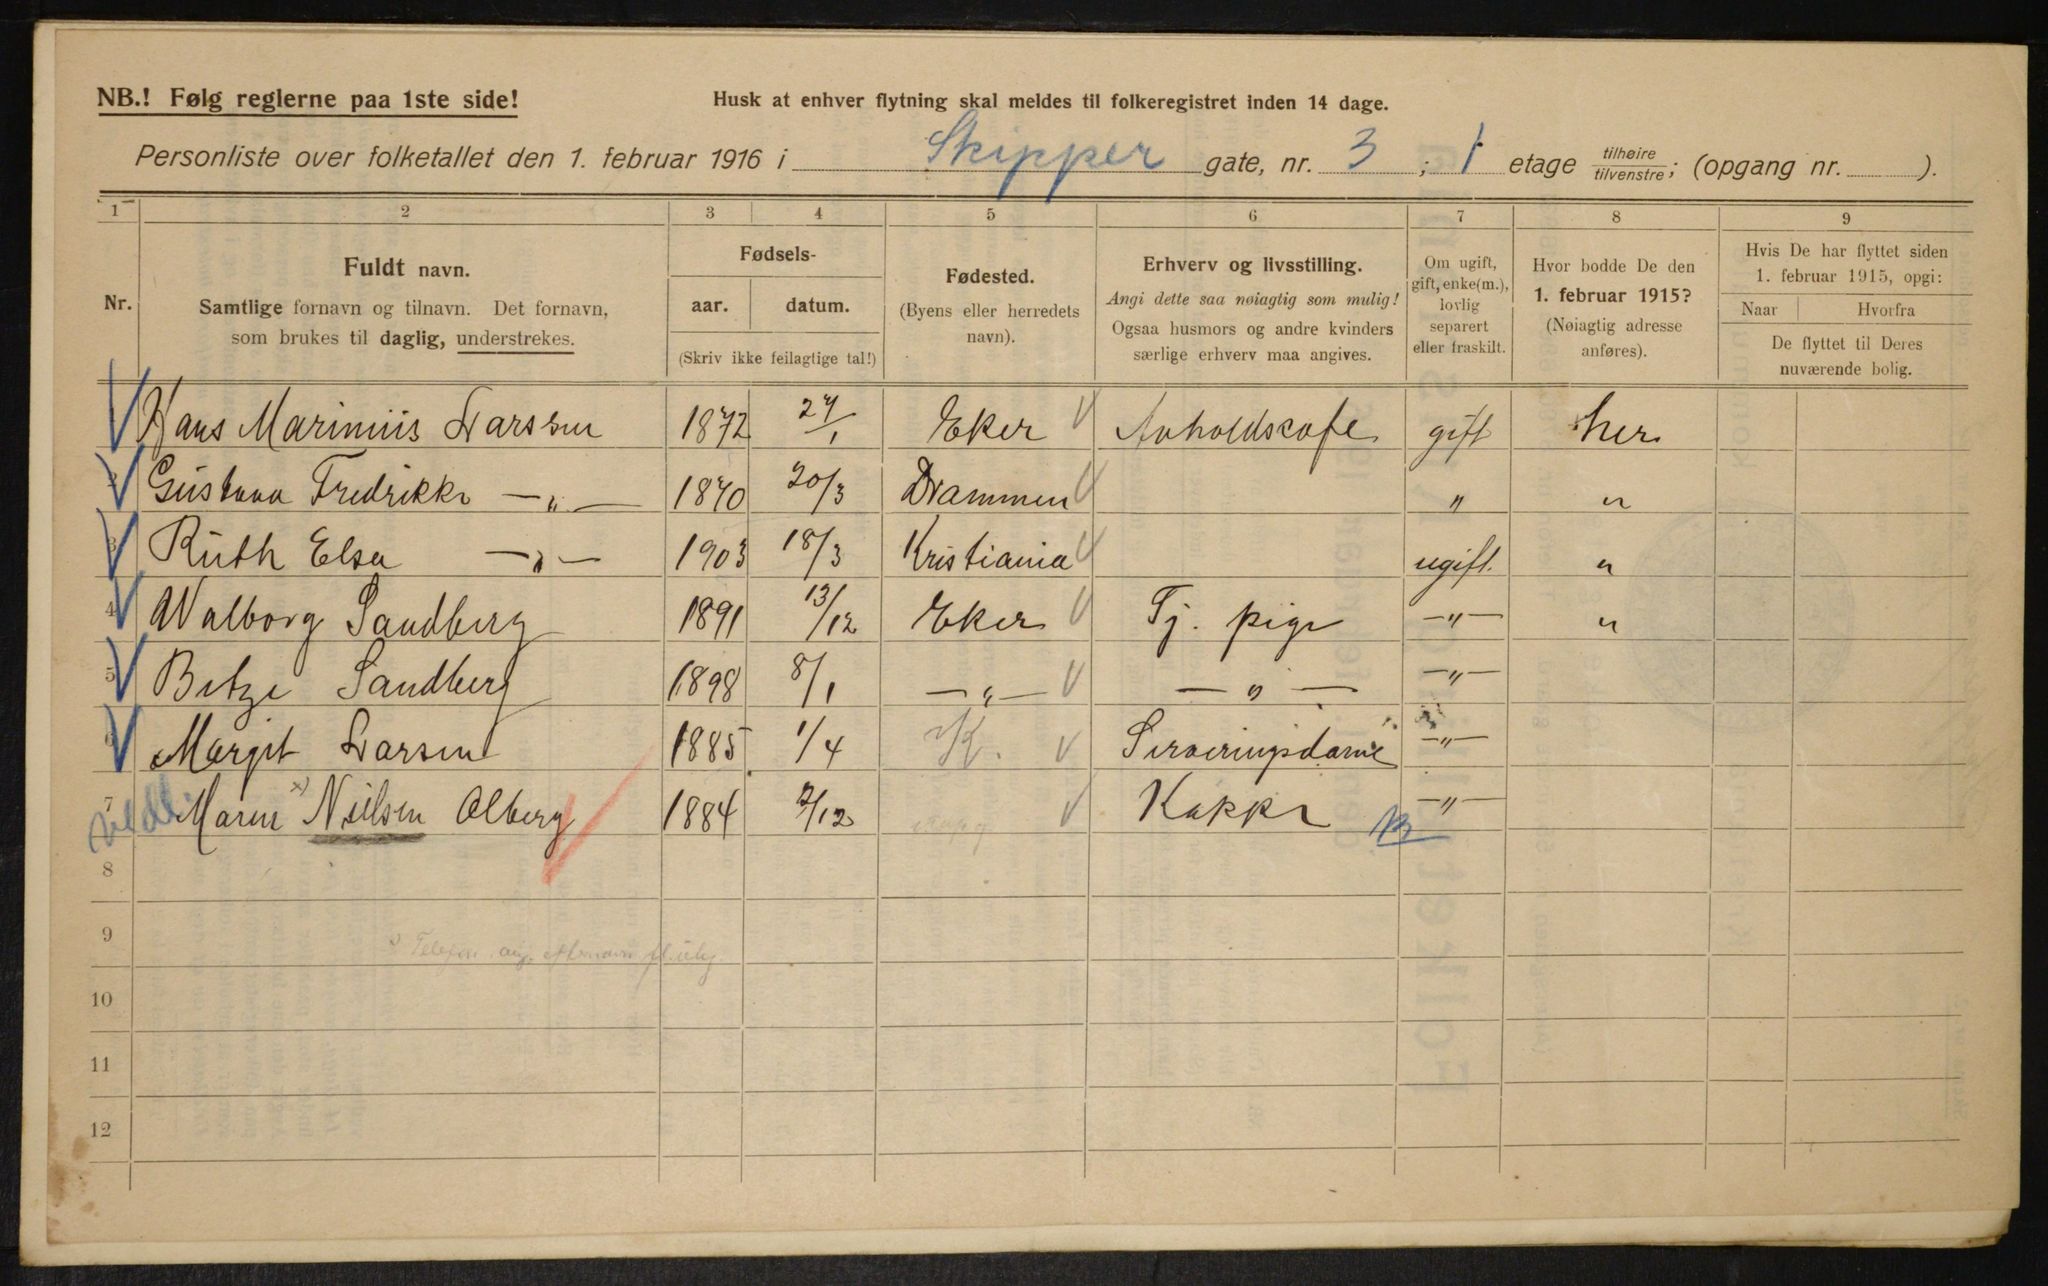 NB.! Følg reglerne paa 1ste side!
Husk at enhver flytning skal meldes til folkeregistret inden 14 dage.
Personliste over folketallet den 1. februar 1916 i Skipper gate, nr. 3 ; 1 etage tilhøire tilvenstre; (opgang nr. ).
1 2 3 4 5 6 7 8 9
Nr.
Fuldt navn.
Samtlige fornavn og tilnavn. Det fornavn,
som brukes til daglig, understrekes.
Fødsels-
aar. datum.
(Skriv ikke feilagtige tal!)
Fødested.
(Byens eller herredets
navn).
Erhverv og livsstilling.
Angi dette saa nøiagtig som mulig!
Ogsaa husmors og andre kvinders
særlige erhverv maa angives.
Om ugift,
gift, enke(m.),
lovlig
separert
eller fraskilt.
Hvor bodde De den
1. februar 1915?
(Nøiagtig adresse
anføres).
Hvis De har flyttet siden
1. februar 1915, opgi:
Naar Hvorfra
De flyttet til Deres
nuværende bolig.
Hans Marinius Larssen 1872 27/1 Eker Avholdscafe gift her
2 Gustava Fredrikke —„— 1870 20/3 Drammen „ „
3 Ruth Elsa —„— 1903 18/3 Kristiania ugift. „
4 Walborg Sandberg 1891 13/12 Eker Tj. pige —„— „
5 Betzi Sandberg 1898 8/1 —„— —„— —„—
6 Margit Larsen 1885 1/4 K. Serveringsdame —„—
7 Maren x) Nielsen Olberg 1884 2/12 Kokke —„—
8
9
x) Telefon
10
11
12